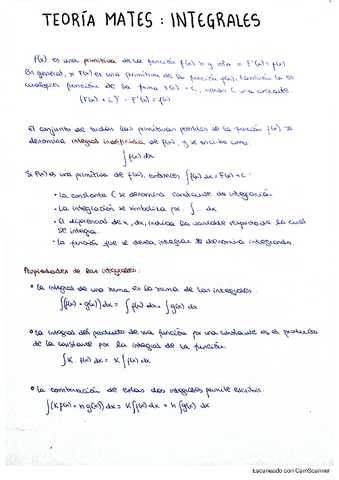 TEORÍA MATES: INTEGRALES
F(x) es una primitiva de la función f(x) si y sólo si F'(x) = f(x)
En general, si F(x) es una primitiva de la función f(x), también lo es
cualquier función de la forma F(x) + C, siendo C una constante
(F(x) + C)' = F'(x) = f(x)
El conjunto de todas las primitivas posibles de la función f(x) se
denomina integral indefinida de f(x), y se escribe como:
∫ f(x) dx
Si F(x) es una primitiva de f(x), entonces ∫ f(x) dx = F(x) + C:
• La constante C se denomina constante de integración
• La integración se simboliza por: ∫ ... dx
• El diferencial de x, dx, indica la variable respecto de la cual
se integra.
• La función que se desea integrar se denomina integrando.
Propiedades de las integrales:
• La integral de una suma es la suma de las integrales
∫(f(x) + g(x)) dx = ∫ f(x) dx + ∫ g(x) dx
• La integral del producto de una función por una constante es el producto
de la constante por la integral de la función:
∫ K · f(x) dx = K ∫ f(x) dx
• La combinación de estas dos integrales permite escribir:
∫(K f(x) + h g(x)) dx = K ∫ f(x) dx + h ∫ g(x) dx
Escaneado con CamScanner